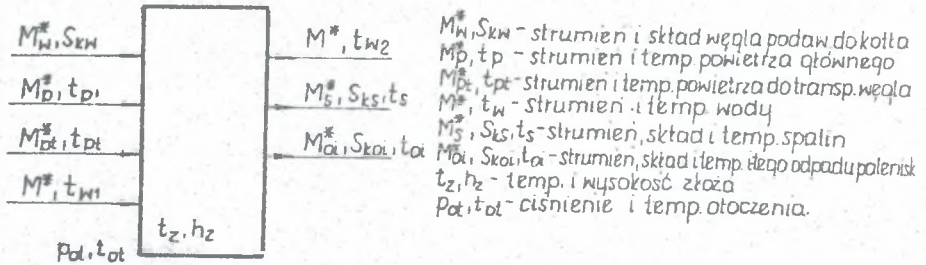 M*w, Skw
M*p, tp,
M*pt, tpt
M*, tw1
tz, hz
pot, tot
M*, tw2
M*s, Sks, ts
M*oi, Skoi, toi
M*w, Skw - strumień i skład węgla podaw. do kotła
M*p, tp - strumień i temp. powietrza głównego
M*pt, tpt - strumień i temp. powietrza do transp. węgla
M*, tw - strumień i temp. wody
M*s, Sks, ts - strumień, skład i temp. spalin
M*oi, Skoi, toi - strumień, skład i temp. itego odpadu palenisk
tz, hz - temp. i wysokość złoża
pot, tot - ciśnienie i temp. otoczenia.